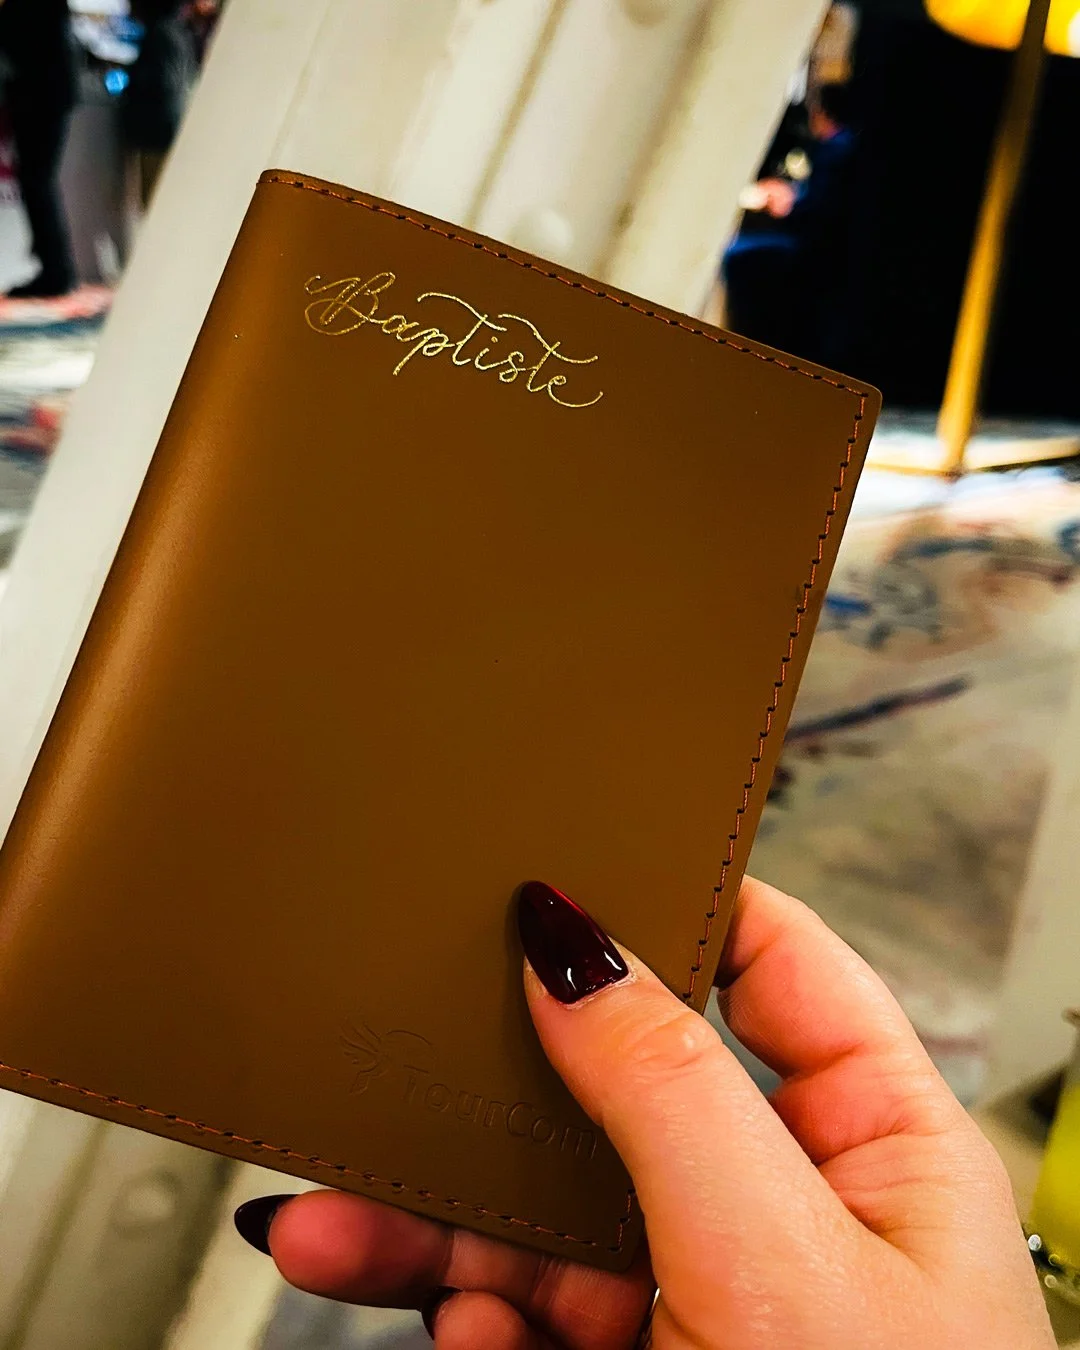 Baptiste
TourCom